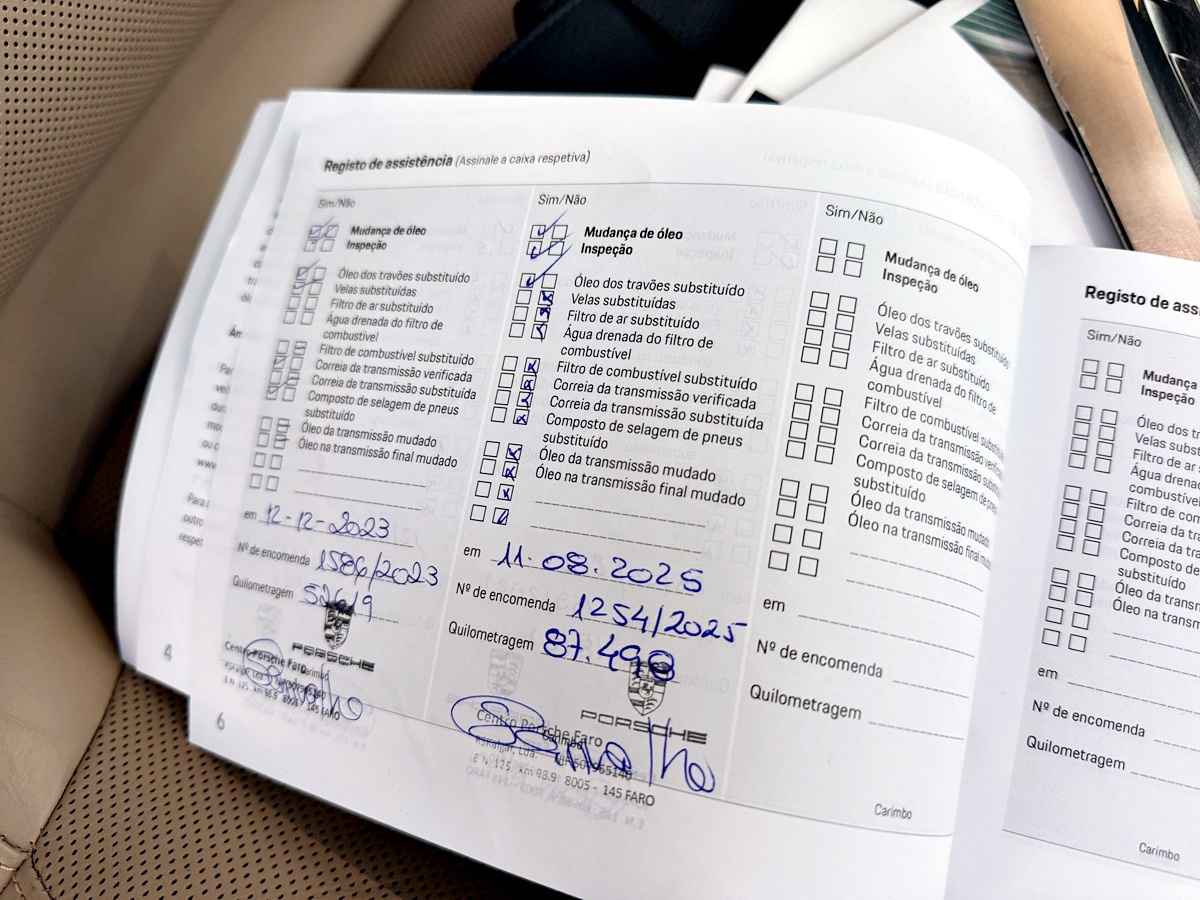 Registo de assistência (Assinale a caixa respetiva)
Sim/Não
Mudança de óleo
Inspeção
Óleo dos travões substituído
Velas substituídas
Filtro de ar substituído
Água drenada do filtro de
combustível
Filtro de combustível substituído
Correia da transmissão verificada
Correia da transmissão substituída
Composto de selagem de pneus
substituído
Óleo da transmissão mudado
Óleo na transmissão final mudado
em 12-12-2023
Nº de encomenda 1586/2023
Quilometragem
PORSCHE
Centro Porsche Faro
Carimbo
145 FARO
4
6
Sim/Não
Mudança de óleo
Inspeção
Óleo dos travões substituído
Velas substituídas
Filtro de ar substituído
Água drenada do filtro de
combustível
Filtro de combustível substituído
Correia da transmissão verificada
Correia da transmissão substituída
Composto de selagem de pneus
substituído
Óleo da transmissão mudado
Óleo na transmissão final mudado
em 11.08.2025
Nº de encomenda 1254/2025
Quilometragem 87.498
PORSCHE
Centro Porsche Faro
Carimbo
E.N. 125, km 98.9 8005 - 145 FARO
Sim/Não
Mudança de óleo
Inspeção
Óleo dos travões
Velas substituídas
Filtro de ar substituído
Água drenada do filtro de
combustível
Filtro de combustível
Correia da transmissão
Correia da transmissão
Composto de selagem de pneus
substituído
Óleo da transmissão mudado
Óleo na transmissão final
em
Nº de encomenda
Quilometragem
Carimbo
Registo de ass
Sim/Não
Mudança
Inspeção
Óleo dos
Velas
Filtro de ar
Água
combustível
Filtro de
Correia da
Correia da
Composto
substituído
Óleo da
Óleo na
em
Nº de encomenda
Quilometragem
Carimbo